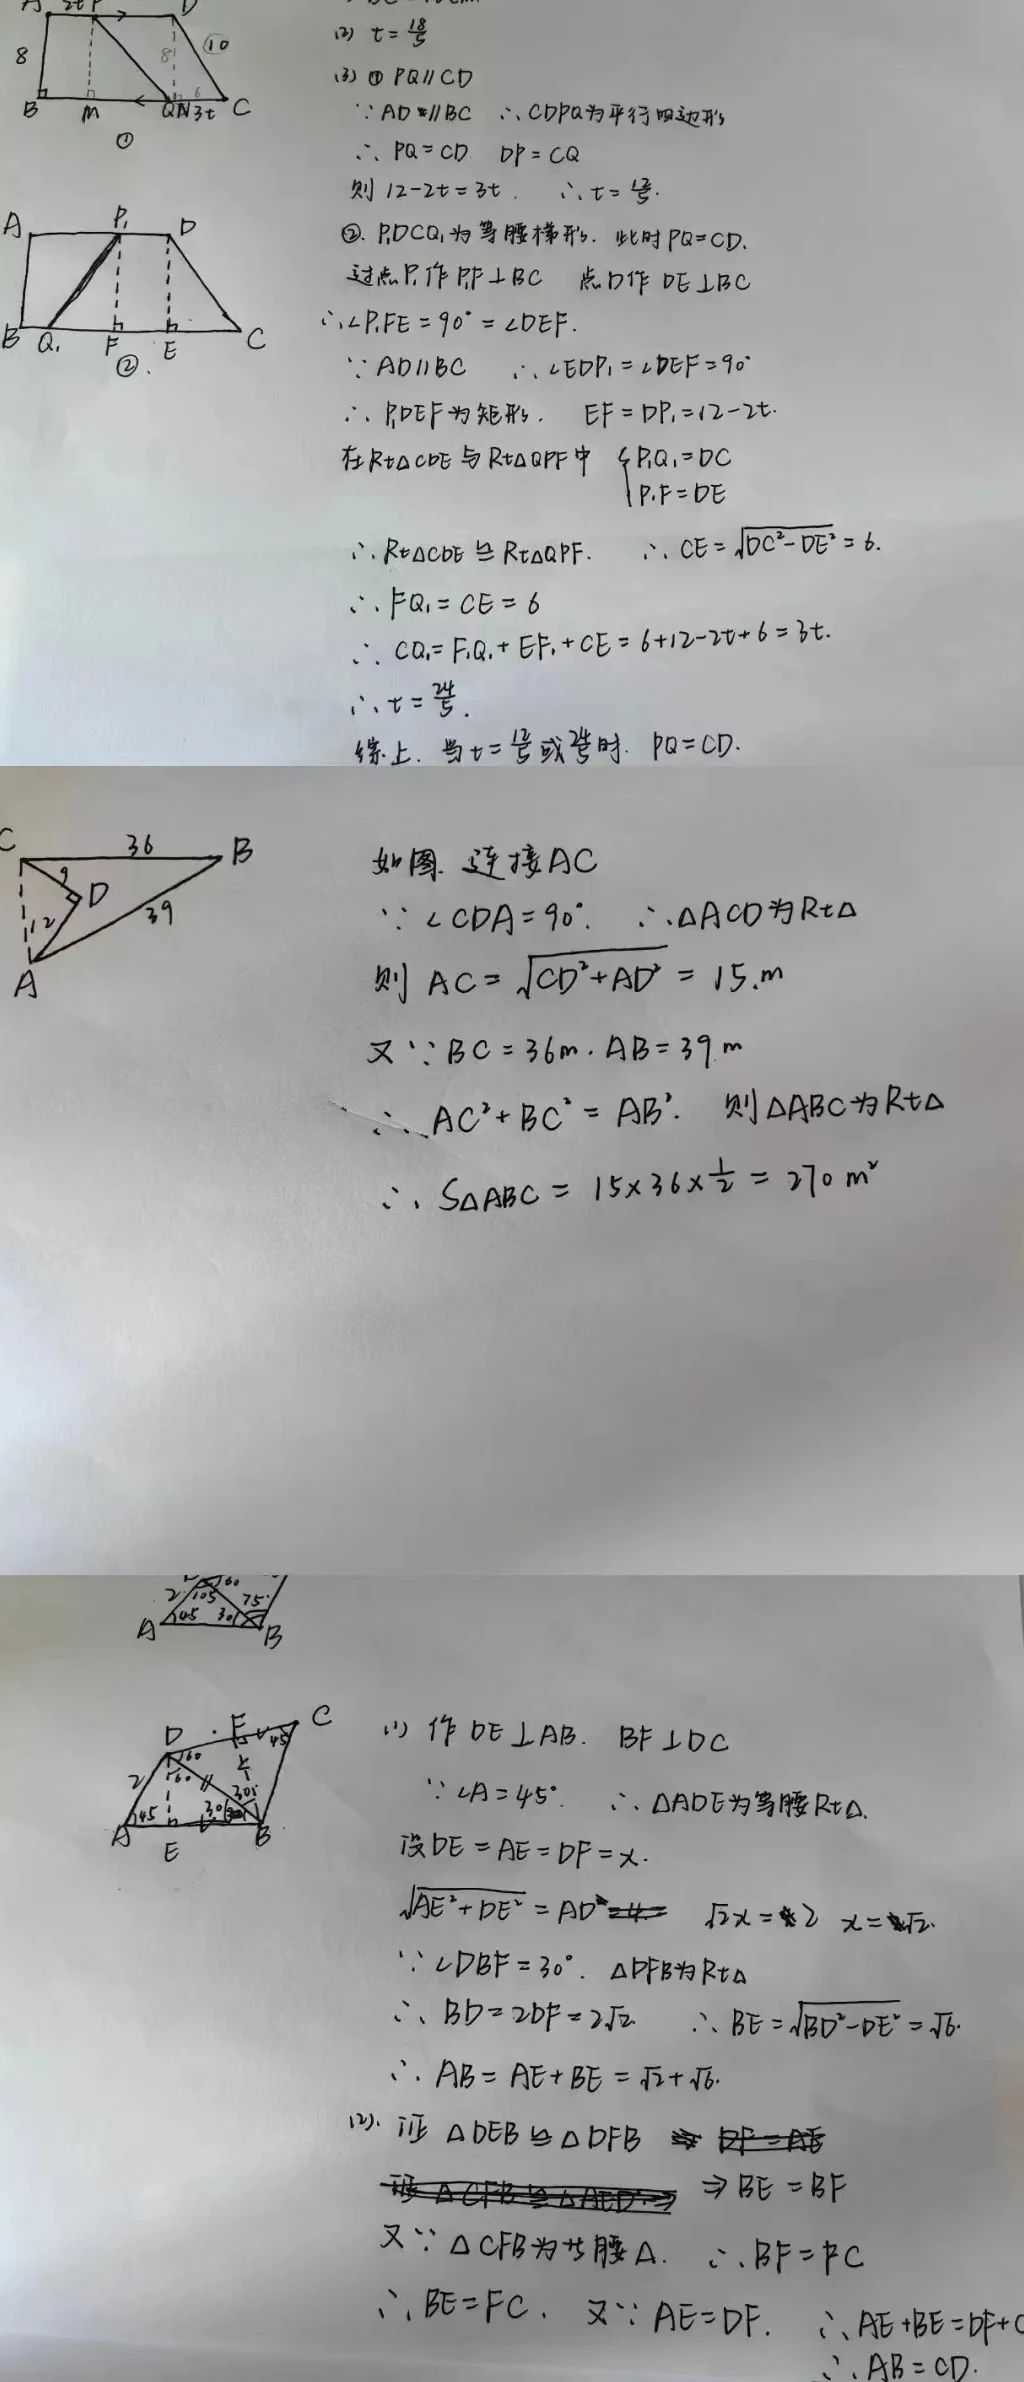 A 2t P D
8 8 10
6
B M Q N 3t C
①
(2) t = 18/5
(3) ① PQ∥CD
∵ AD∥BC ∴ CDPQ为平行四边形
∴ PQ = CD DP = CQ
则 12-2t = 3t. ∴ t = 12/5.
A P₁ D
B Q₁ F E C
②.
②. P₁DCQ₁为等腰梯形. 此时PQ=CD.
过点P₁作P₁F⊥BC 点D作DE⊥BC
∴∠P₁FE = 90° = ∠DEF.
∵ AD∥BC ∴∠EDP₁ = ∠DEF = 90°
∴ P₁DEF为矩形. EF = DP₁ = 12-2t.
在Rt△CDE与Rt△QPF中 { P₁Q₁ = DC
P₁F = DE
∴ Rt△CDE ≌ Rt△QPF. ∴ CE = √(DC²-DE²) = 6.
∴ FQ₁ = CE = 6
∴ CQ₁ = F₁Q₁ + EF₁ + CE = 6+12-2t+6 = 3t.
∴ t = 24/5.
综上. 当t = 12/5 或 24/5 时. PQ = CD.
C 36 B
9 D
12 39
A
如图. 连接AC
∵ ∠CDA = 90°. ∴ △ACD为Rt△
则 AC = √(CD²+AD²) = 15.m
又∵ BC = 36m. AB = 39.m
∴ AC²+BC² = AB². 则△ABC为Rt△
∴ S△ABC = 15×36×1/2 = 270 m²
2 105 60 75°
A 45 30 B
D F C
2 60 60 45
45 30 30°
A E B
(1) 作DE⊥AB. BF⊥DC
∵ ∠A = 45°. ∴ △ADE为等腰Rt△.
设DE = AE = DF = x.
√(AE²+DE²) = AD = 4 √2x = 2 x = √2.
∵ ∠DBF = 30°. △DFB为Rt△
∴ BD = 2DF = 2√2 ∴ BE = √(BD²-DE²) = √6.
∴ AB = AE+BE = √2+√6.
(2). 证 △DEB ≌ △DFB ⇒ DF = AE
证 △CFB ≌ △AED ⇒ ⇒ BE = BF
又∵ △CFB为等腰△. ∴ BF = FC
∴ BE = FC. 又∵ AE = DF. ∴ AE+BE = DF+C
∴ AB = CD.